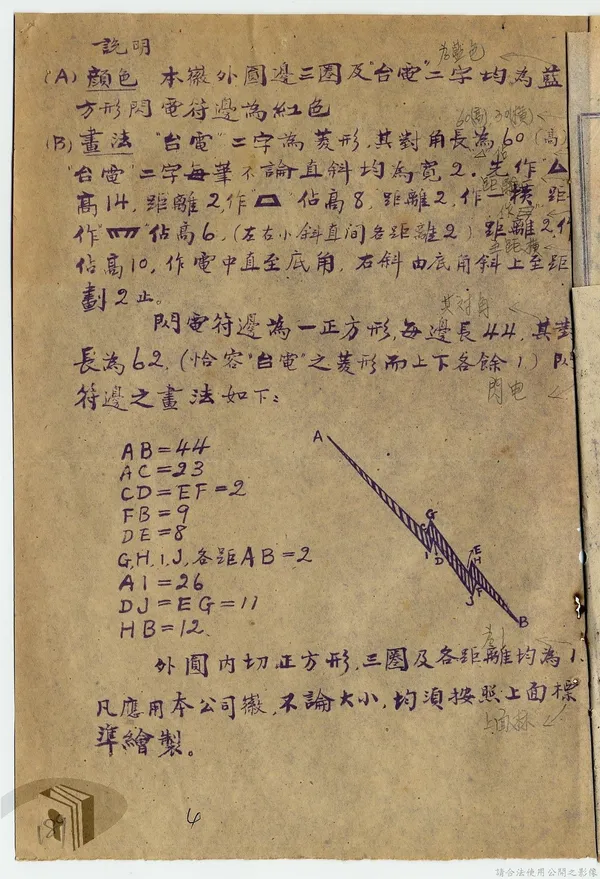 說明
(A) 顏色 本徽外圓邊三圈及"台電"二字均為藍
方形閃電符邊為紅色
(B) 畫法 "台電"二字為菱形,其對角長為60(高)
"台電"二字每筆不論直斜均為寬2.先作"
高14,距離2,作" "佔高8,距離2,作一橫,距
作" "佔高6,(左右小斜直间各距離2)距離2,作
佔高10,作電中直至底角,右斜由底角斜上至距
劃2止。
閃電符邊為一正方形,每邊長44,其對
長為62,(恰容"台電"之菱形而上下各餘1)閃
符邊之畫法如下:
AB=44
AC=23
CD=EF=2
FB=9
DE=8
G,H,I,J,各距AB=2
AI=26
DJ=EG=11
HB=12.
A
G
I
D
E
H
J
B
外圓內切正方形,三圈及各距離均為1.
凡應用本公司徽,不論大小,均須按照上面標
準繪製。
為藍色
60(高) 30(橫)
距離
其对角
閃电
為1
上面标
4
請合法使用公開之影像